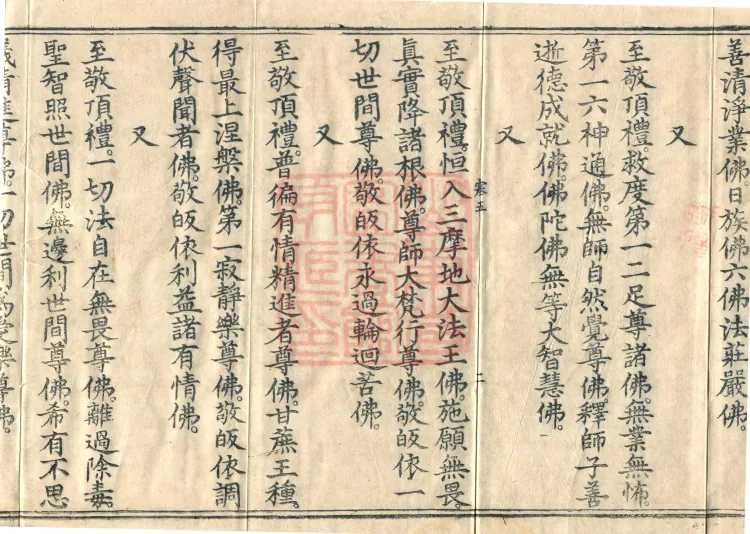 善清淨業佛日族佛六佛法莊嚴佛。
又
至敬頂禮。救度第一二足尊諸佛。無業無怖。
第一六神通佛。無師自然覺尊佛。釋師子善
逝德成就佛。佛陀佛無等大智慧佛。
又
至敬頂禮。恒入三摩地大法王佛。施願無畏。
眞實降諸根佛。尊師大梵行尊佛。敬皈依一
切世間尊佛。敬皈依永過輪迴苦佛。
又
至敬頂禮。普徧有情精進者尊佛。甘蔗王種。
得最上涅槃佛。第一寂靜樂尊佛。敬皈依調
伏聲聞者佛。敬皈依利益諸有情佛。
又
至敬頂禮。一切法自在無畏尊佛。離過除毒。
聖智照世間佛。無邊利世間尊佛。希有不思
精進尊佛。一切世間爲愛樂尊佛。